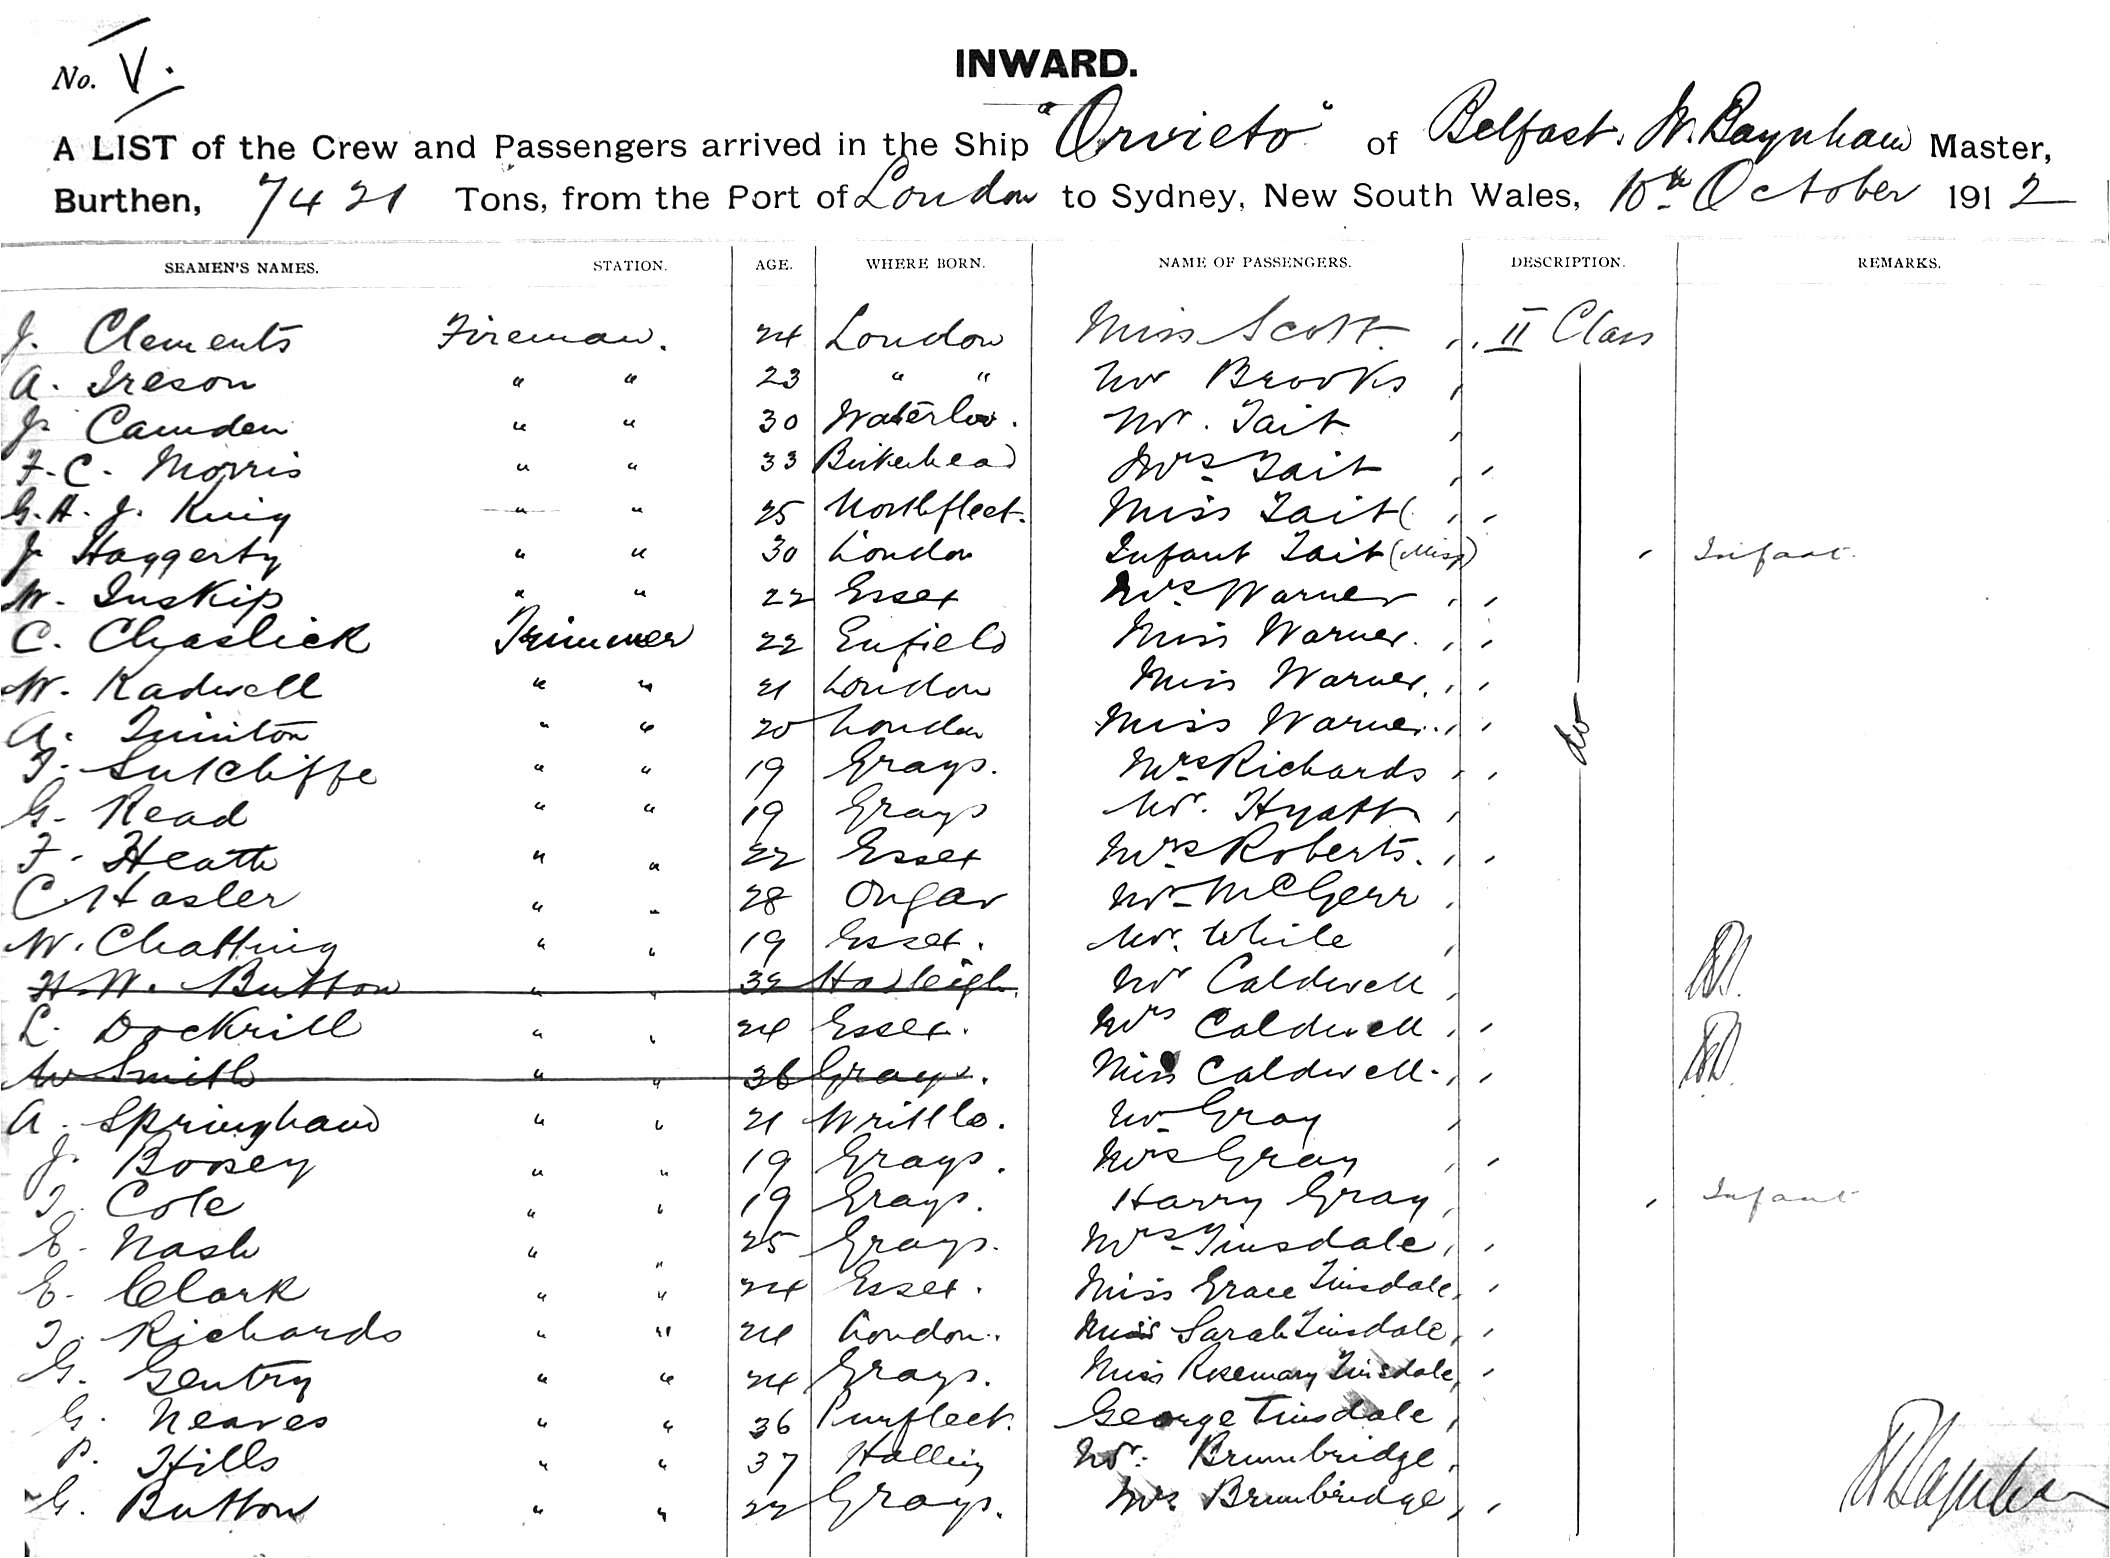 No. V.
INWARD.
A LIST of the Crew and Passengers arrived in the Ship "Orvieto" of Belfast. W. Baynham Master,
Burthen, 7421 Tons, from the Port of London to Sydney, New South Wales, 10th October 1912
SEAMEN'S NAMES. STATION. AGE. WHERE BORN. NAME OF PASSENGERS. DESCRIPTION. REMARKS.
J. Clements Fireman. 24 London Miss Scott. II Class
A. Ireson " " 23 " " Mr Brooks
J. Camden " " 30 Waterloo. Mr. Tait
F. C. Morris " " 33 Birkenhead Mrs Tait
G. H. J. King " " 25 Northfleet. Miss Tait
J Haggerty " " 30 London Infant Tait (Miss) Infant.
W. Inskip " " 22 Essex Mrs Warner
C. Chaslick Trimmer 22 Enfield Miss Warner.
W. Kadwell " " 21 London Miss Warner.
A. " " 20 London Miss Warner. do
T. Sutcliffe " " 19 Grays. Mrs Richards
G. Read " " 19 Grays Mr. Hyatt
F. Heath " " 22 Essex Mrs Roberts.
C Hasler " " 28 Ongar Mr McGerr
W. Chatting " " 19 Essex. Mr. White
H. W. Button " " 32 Hadleigh. Mr Caldwell
L. Dockrill " " 24 Essex. Mrs Caldwell
W Smith " " 36 Grays. Miss Caldwell
A. Springham " " 21 Writtle. Mr Gray
J. Boosey " " 19 Grays. Mrs Gray
T. Cole " " 19 Grays. Harry Gray Infant
E. Nash " " 25 Grays. Mrs Tinsdale
E. Clark " " 24 Essex. Miss Grace Tinsdale
T. Richards " " 24 London. Miss Sarah Tinsdale
G. Gentry " " 24 Grays. Miss Rosemary Tinsdale
G. Neaves " " 36 Purfleet. George Tinsdale
P. Hills " " 37 Halling Mr. Brumbridge
G. Button " " 22 Grays. Mrs Brumbridge
W Baynham